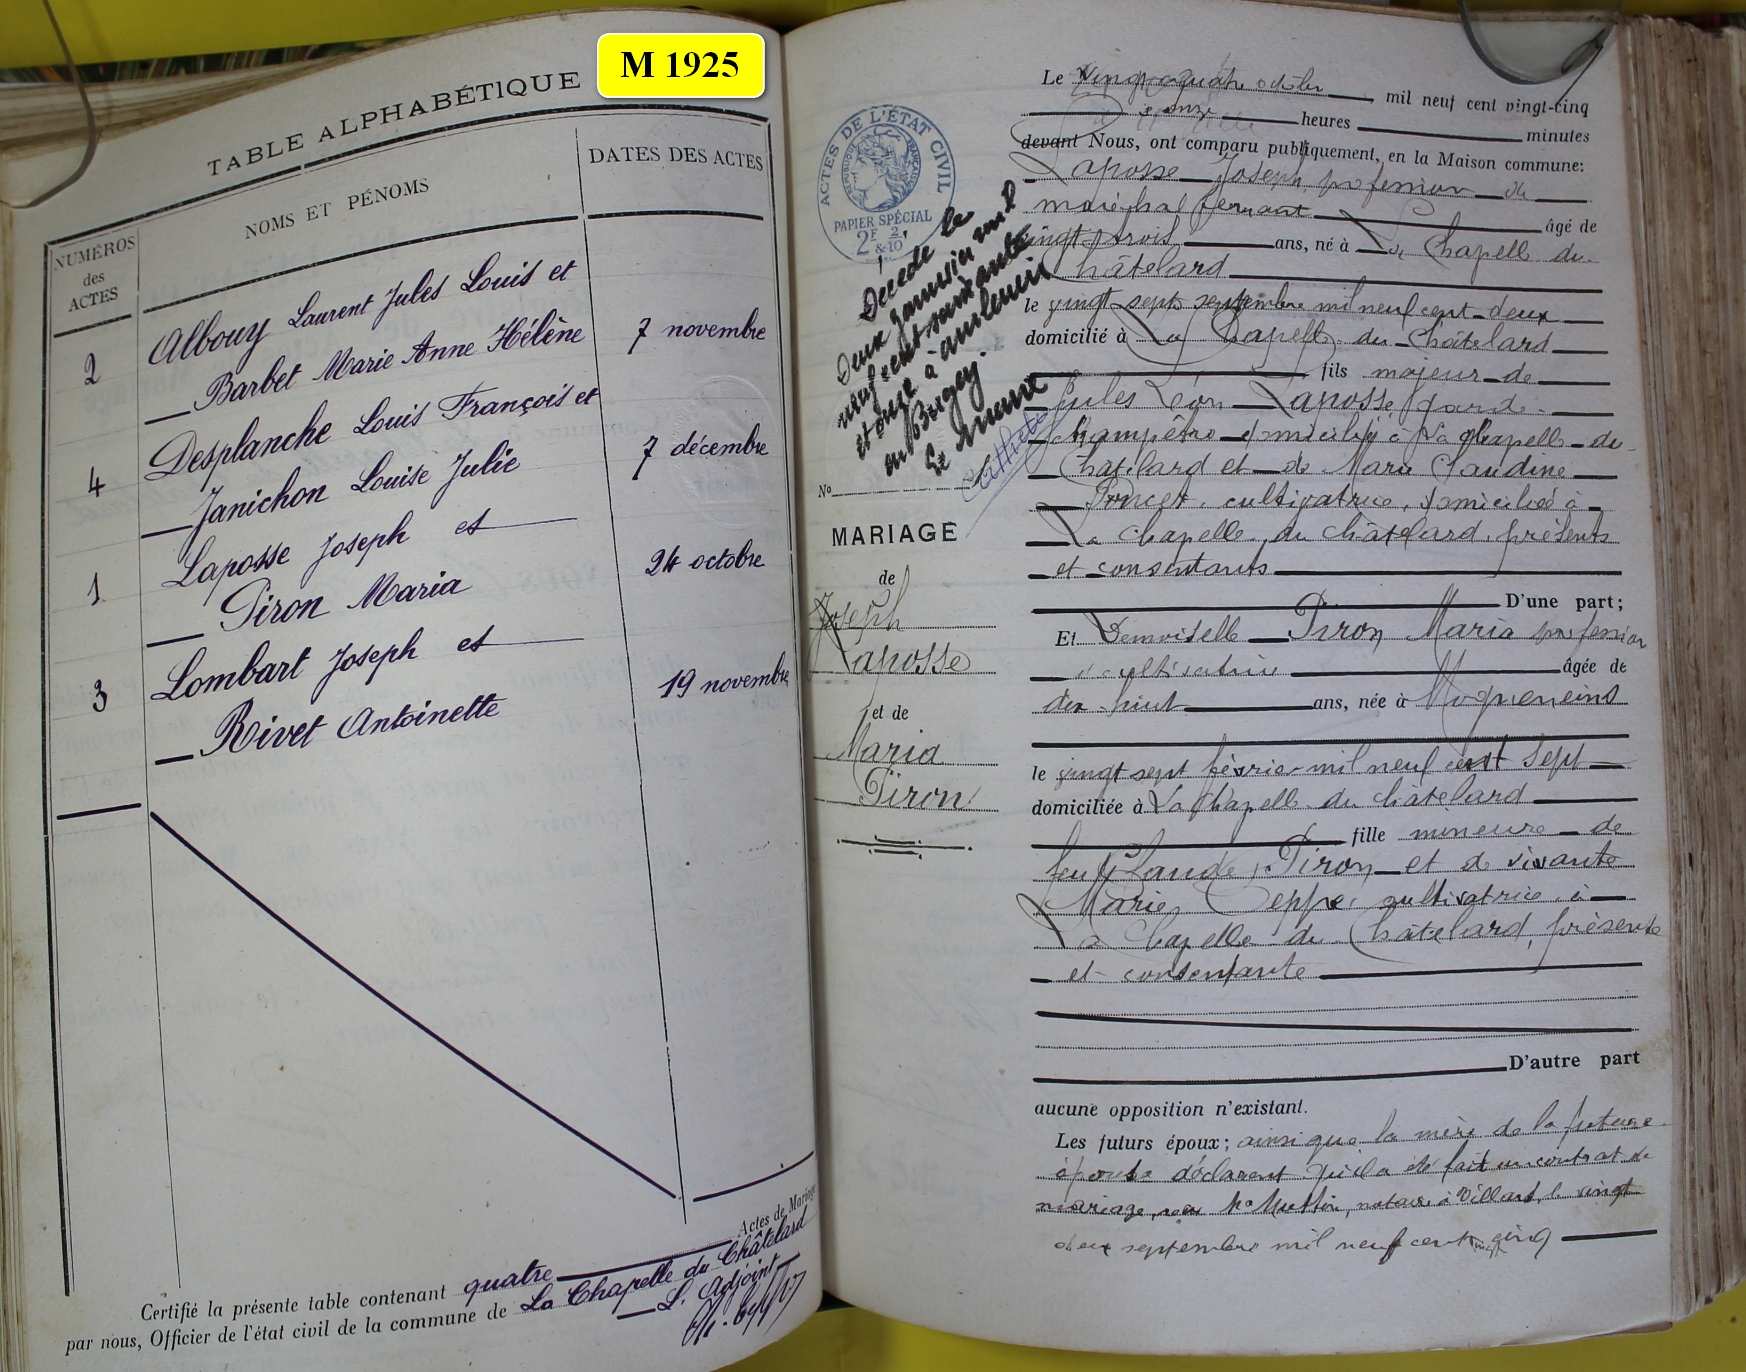 M 1925
TABLE ALPHABÉTIQUE
NUMÉROS
des
ACTES
NOMS ET PÉNOMS
DATES DES ACTES
2
Albouy Laurent Jules Louis et
Barbet Marie Anne Hélène
7 novembre
4
Desplanche Louis François et
Janichon Louise Julie
7 décembre
1
Laposse Joseph et
Piron Maria
24 octobre
3
Lombart Joseph et
Rivet Antoinette
19 novembre
Certifié la présente table contenant quatre Actes de Mariage
par nous, Officier de l'état civil de la commune de La Chapelle du Châtelard
L. Adjoint
ACTES DE L'ÉTAT CIVIL
RÉPUBLIQUE FRANÇAISE
PAPIER SPÉCIAL
2F 2/10
Décédé le
deux janvier mil
neuf cent soixante
et onze à Ambérieu
en Bugey.
Le
No
MARIAGE
de
Joseph
Laposse
et de
Maria
Piron
Le vingt quatre octobre mil neuf cent vingt-cinq
à onze heures minutes
devant Nous, ont comparu publiquement, en la Maison commune:
Laposse Joseph profession de
maréchal ferrant âgé de
vingt trois ans, né à La Chapelle du
Châtelard
le vingt sept septembre mil neuf cent deux
domicilié à La Chapelle du Châtelard
fils majeur de
Jules Léon Laposse garde
champêtre domicilié à La Chapelle du
Châtelard et de Marie Claudine
Poncet, cultivatrice, domiciliée à
La Chapelle du Châtelard, présents
et consentants
D'une part;
Et Demoiselle Piron Maria profession
cultivatrice âgée de
dix huit ans, née à Mogneneins
le vingt sept février mil neuf cent sept
domiciliée à La Chapelle du Châtelard
fille mineure de
feu Claude Piron et de vivante
Marie Seppe, cultivatrice, à
La Chapelle du Châtelard, présente
et consentante
D'autre part
aucune opposition n'existant.
Les futurs époux; ainsi que la mère de la future
épouse déclarent qu'il a été fait un contrat de
mariage, reçu Me notaire à Villars, le vingt
deux septembre mil neuf cent vingt cinq